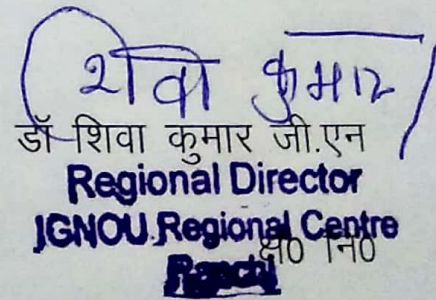 शिवा कुमार
डॉ शिवा कुमार जी.एन
Regional Director
IGNOU Regional Centre
क्षे० नि०
Ranchi